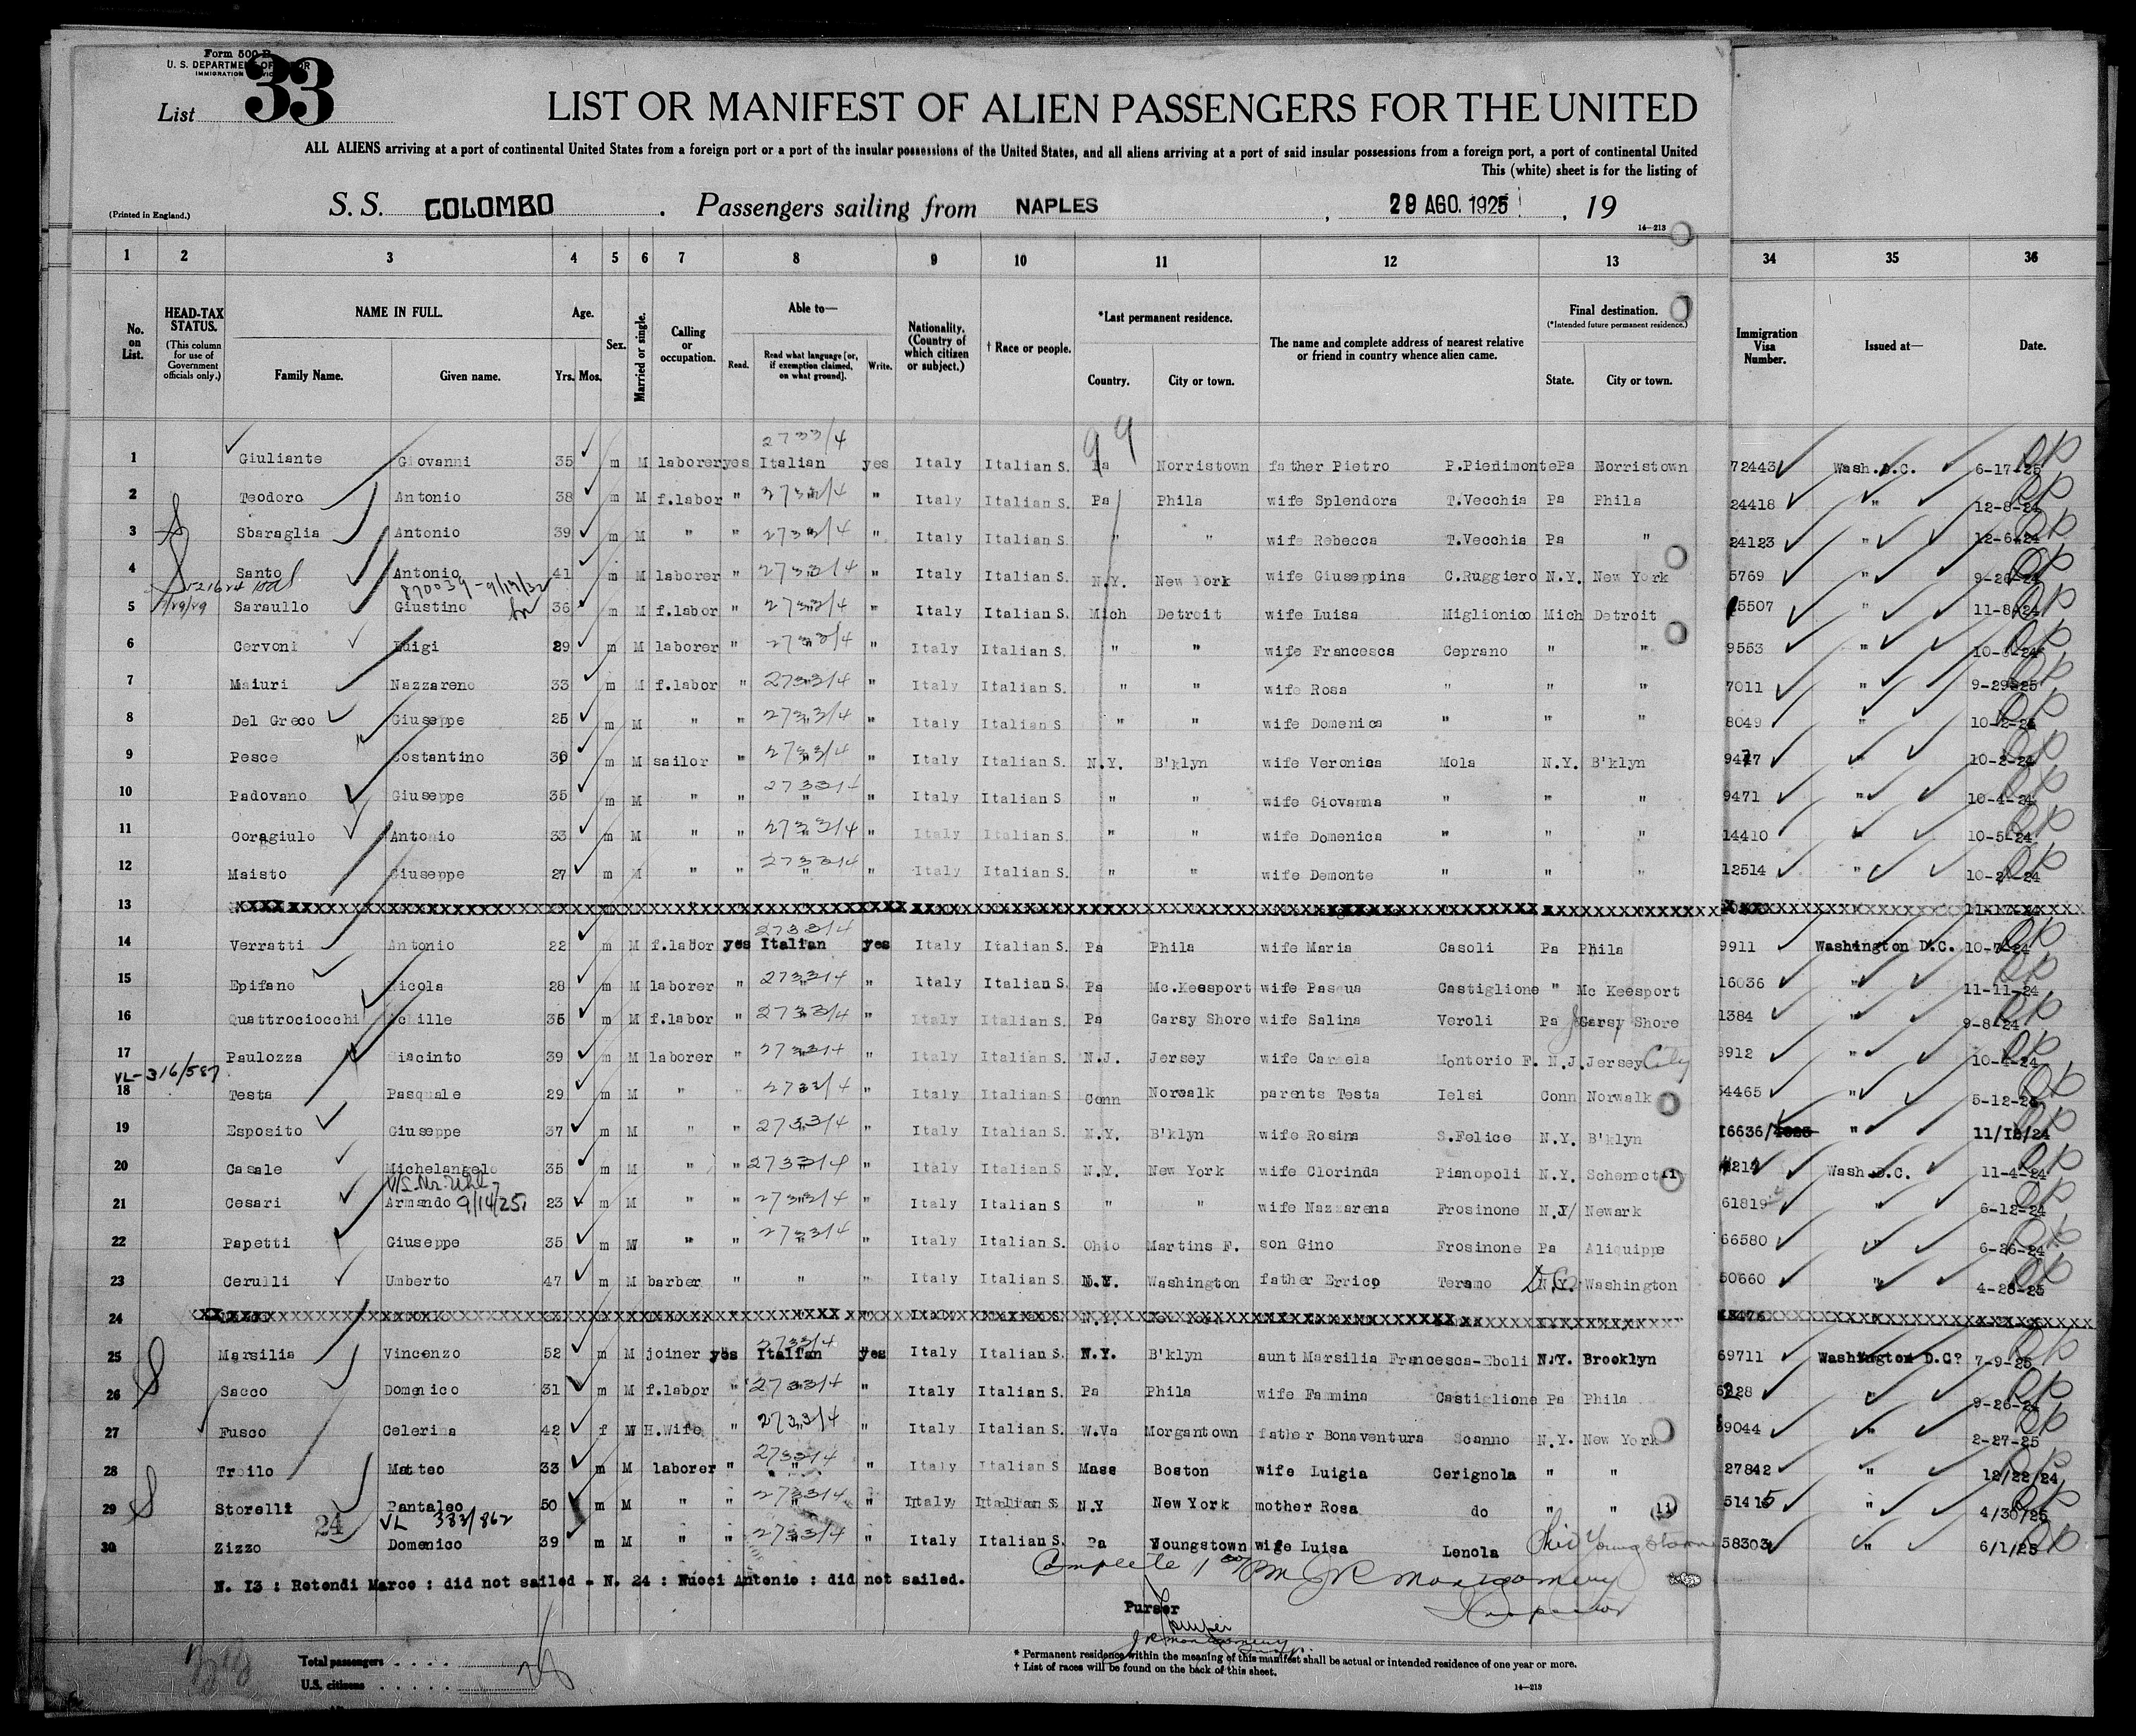 Form 500 B
U. S. DEPARTMENT OF LABOR
IMMIGRATION SERVICE
List 33
LIST OR MANIFEST OF ALIEN PASSENGERS FOR THE UNITED
ALL ALIENS arriving at a port of continental United States from a foreign port or a port of the insular possessions of the United States, and all aliens arriving at a port of said insular possessions from a foreign port, a port of continental United
This (white) sheet is for the listing of
(Printed in England.) S. S. COLOMBO . Passengers sailing from NAPLES , 29 AGO. 1925 , 19
14—213
1 2 3 4 5 6 7 8 9 10 11 12 13 34 35 36
No. on List. HEAD-TAX STATUS. (This column for use of Government officials only.) NAME IN FULL. Family Name. Given name. Age. Yrs. Mos. Sex. Married or single. Calling or occupation. Able to— Read. Read what language [or, if exemption claimed, on what ground]. Write. Nationality. (Country of which citizen or subject.) † Race or people. *Last permanent residence. Country. City or town. The name and complete address of nearest relative or friend in country whence alien came. Final destination. (*Intended future permanent residence.) State. City or town. Immigration Visa Number. Issued at— Date.
99
1 Giuliante Giovanni 35 m M laborer yes Italian 2733/4 yes Italy Italian S. Pa Norristown father Pietro P.Piedimonte Pa Norristown 72443 Wash.D.C. 6-17-25
2 Teodoro Antonio 38 m M f.labor " " Italy Italian S. Pa Phila wife Splendora T.Vecchia Pa Phila 24418 " 12-8-24
3 Sbaraglia Antonio 39 m M " " 2733/4 " Italy Italian S. " " wife Rebecca T.Vecchia Pa " 24123 " 12-6-24
4 Santo Antonio 41 m M laborer " 2733/4 " Italy Italian S. N.Y. New York wife Giuseppina C.Ruggiero N.Y. New York 5769 " 9-26-24
870039-9/19/32
5 7/29/29 Saraullo Giustino 36 m M f.labor " 2733/4 " Italy Italian S. Mich Detroit wife Luisa Miglionico Mich Detroit 5507 " 11-8-24
6 Cervoni Luigi 29 m M laborer " 2733/4 " Italy Italian S. " " wife Francesca Ceprano " " 9553 " 10-3-24
7 Maiuri Nazzareno 33 m M f.labor " 2733/4 " Italy Italian S. " " wife Rosa " " " 7011 " 9-29-25
8 Del Greco Giuseppe 25 m M " " 2733/4 " Italy Italian S " " wife Domenica " " " 8049 " 10-2-24
9 Pesce Costantino 36 m M sailor " 2733/4 " Italy Italian S. N.Y. B'klyn wife Veronica Mola N.Y. B'klyn 9427 " 10-2-24
10 Padovano Giuseppe 35 m M " " 2733/4 " Italy Italian S " " wife Giovanna " " " 9471 " 10-4-24
11 Coragiulo Antonio 33 m M " " 2733/4 " Italy Italian S. " " wife Domenica " " " 14410 " 10-5-24
12 Maisto Giuseppe 27 m M " " 2733/4 " Italy Italian S. " " wife Demonte " " " 12514 " 10-2-24
13
14 Verratti Antonio 22 m M f.labor yes Italian 2733/4 yes Italy Italian S. Pa Phila wife Maria Casoli Pa Phila 9911 Washington D.C. 10-7-24
15 Epifano Nicola 28 m M laborer " 2733/4 " Italy Italian S. Pa Mc.Keesport wife Pasqua Castiglione " Mc Keesport 16036 " 11-11-24
16 Quattrociocchi Achille 35 m M f.labor " 2733/4 " Italy Italian S. Pa Garsy Shore wife Salina Veroli Pa Garsy Shore 1384 " 9-8-24
17 Paulozza Giacinto 39 m M laborer " 2733/4 " Italy Italian S. N.J. Jersey wife Carmela Montorio F. N.J. Jersey City 8912 " 10-4-24
VL-316/587
18 Testa Pasquale 29 m M " 2733/4 " Italy Italian S Conn Norwalk parents Testa Ielsi Conn Norwalk 54465 " 5-12-25
19 Esposito Giuseppe 37 m M " " 2733/4 " Italy Italian S. N.Y. B'klyn wife Rosina S.Felice N.Y. B'klyn 16636/ " 11/12/24
20 Casale Michelangelo 35 m M " " 2733/4 " Italy Italian S N.Y. New York wife Clorinda Pianopoli N.Y. Schenect Wash.D.C. 11-4-24
21 Cesari Armando 9/14/25 23 m M " " 2733/4 " Italy Italian S " " wife Nazzarena Frosinone N.J/ Newark 61819 " 6-12-24
22 Papetti Giuseppe 35 m M " " 2733/4 " Italy Italian S. Ohio Martins F. son Gino Frosinone Pa Aliquippa 66580 " 6-26-24
23 Cerulli Umberto 47 m M barber " " " Italy Italian S. Washington father Errico Teramo D.C. Washington 50660 " 4-28-25
24
25 Marsilia Vincenzo 52 m M joiner yes Italian 2733/4 yes Italy Italian S. N.Y. B'klyn aunt Marsilia Francesca-Eboli N.Y. Brooklyn 69711 Washington D.C? 7-9-25
26 Sacco Domenico 31 m M f.labor " 2733/4 " Italy Italian S. Pa Phila wife Fammina Castiglione Pa Phila " 9-26-24
27 Fusco Celerina 42 f M H.Wife " 2733/4 " Italy Italian S. W.Va Morgantown father Bonaventura Scanno N.Y. New York 59044 " 2-27-25
28 Troilo Matteo 33 m M laborer " 2733/4 " Italy Italian S Mass Boston wife Luigia Cerignola " " 27842 " 12/22/24
29 Storelli Pantaleo 50 m M " " 2733/4 " Italy Italian S N.Y New York mother Rosa do " " 51415 " 4/30/25
24 VL 333/862
30 Zizzo Domenico 39 m M " " 2733/4 " Italy Italian S. Pa Youngstown wife Luisa Lenola Ohio Youngstown 58303 " 6/1/25
Complete J R Montgomery
N. 13 : Rotondi Marco : did not sailed - N. 24 : Nucci Antonio : did not sailed.
Inspector
Purser
J R Montgomery
Total passengers . . . .
U.S. citizens . . . . .
* Permanent residence within the meaning of this manifest shall be actual or intended residence of one year or more.
† List of races will be found on the back of this sheet.
14—213